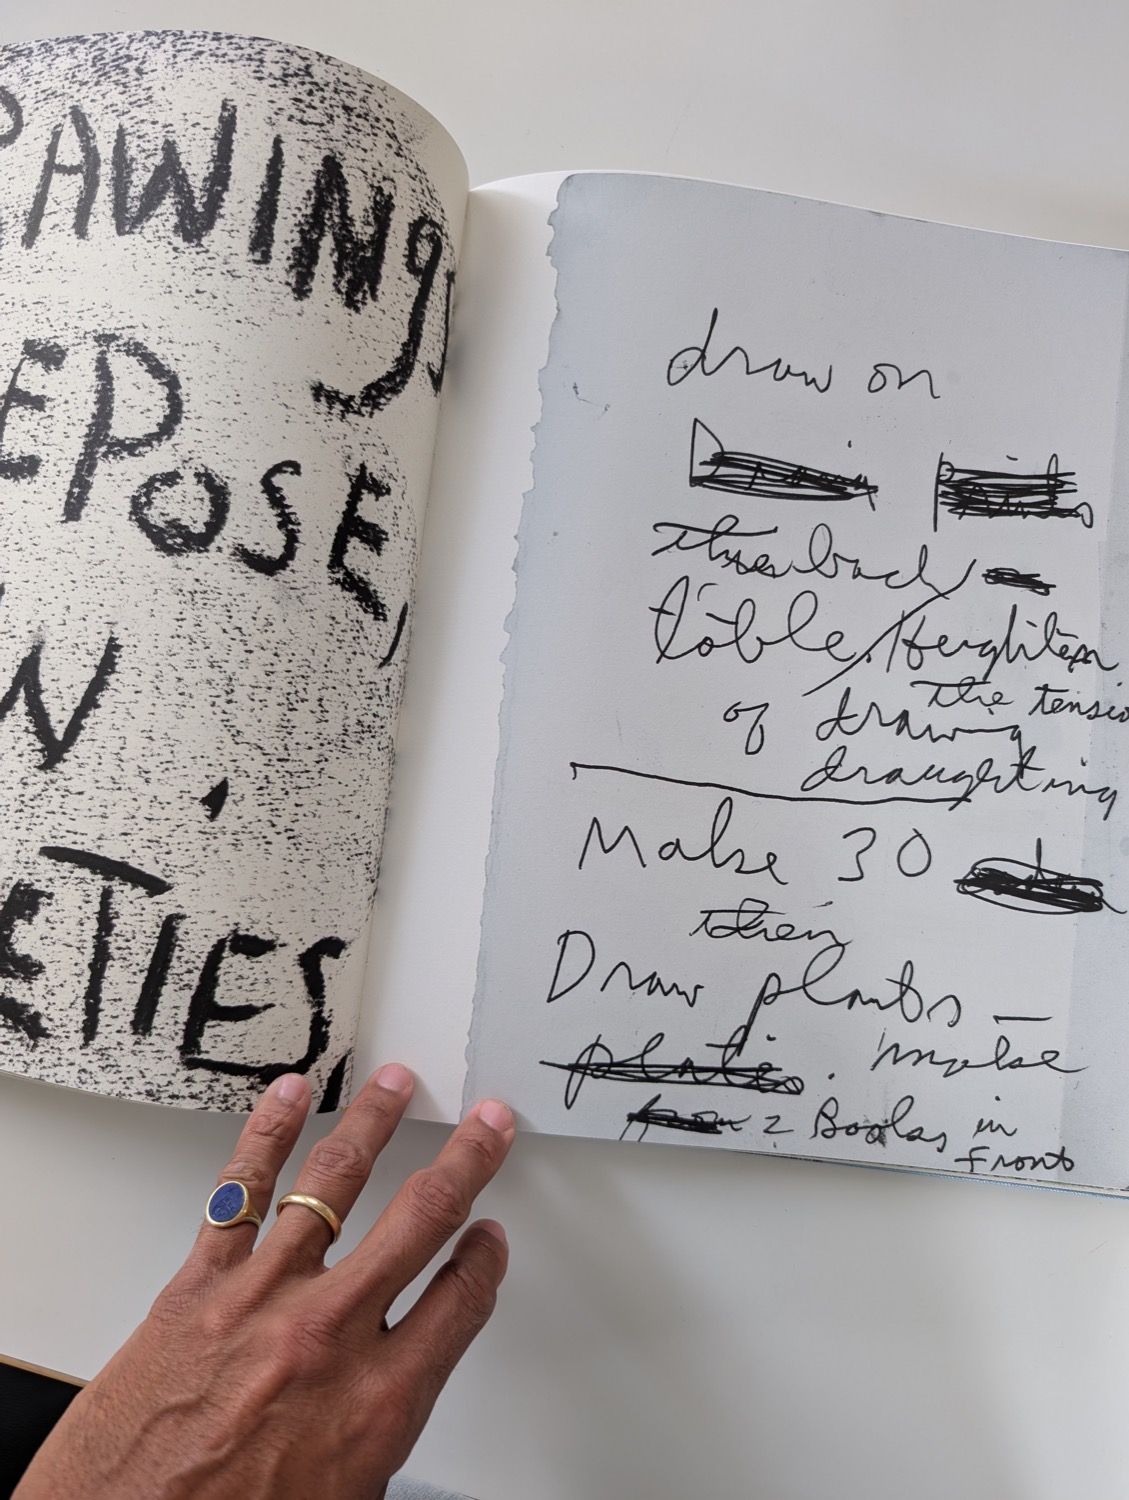 RAWING
EPOSE,
N
ETIES,
draw on
the back
table / Heighten
the tensio
of drawing
draughting
Make 30
then
Draw plants —
plates. make
2 Books in
front